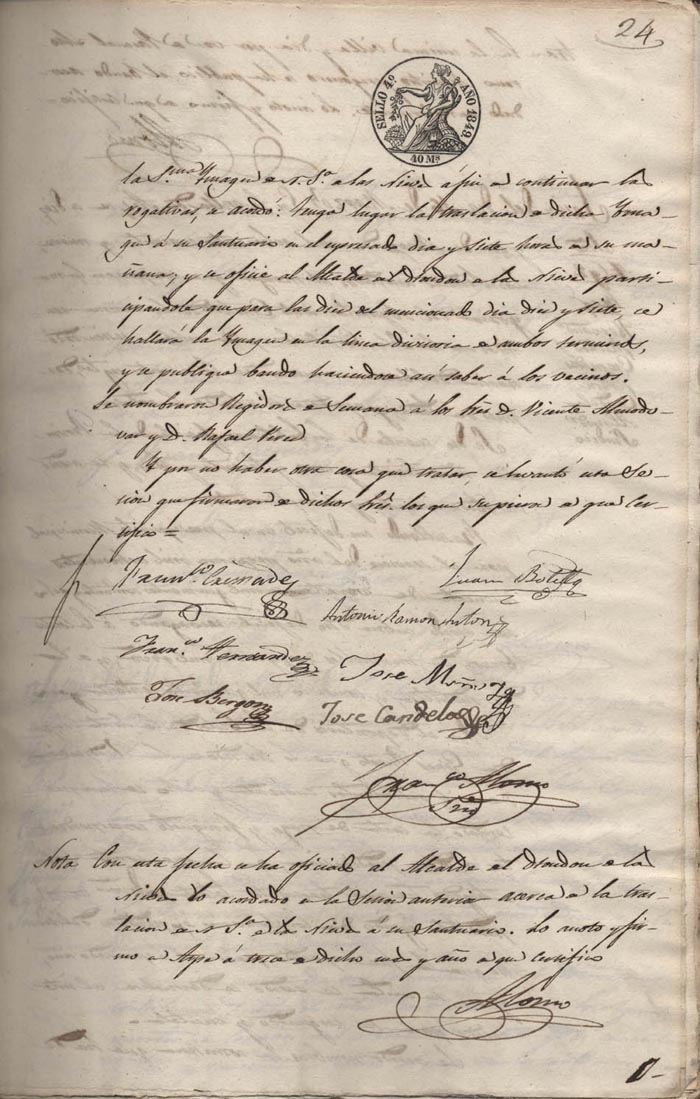 24
SELLO 4º AÑO 1849
40 Ms
la Sma Ymagen e N. Sa e las Nieves á fin e continuar las
rogativas, se acordó: Tenga lugar la traslacion e dicha Yma-
gen á su Santuario en el espresado dia y siete horas e su ma-
ñana; y se oficie al Alcalde el Hondon e las Nieves parti-
cipandole que para las diez del mencionado dia diez y siete, se
hallará la Ymagen en la linea divisoria e ambos terminos,
y se publique bando haciendose asi saber á los vecinos.
Se nombraron Regidores e Semana á los Sres D. Vicente Almodo-
var y D. Rafael
Y por no haber otra cosa que tratar, se levantó esta Se-
sion que firmaron e dichos Sres. los que supieron e que Cer-
tifico =
Franco Cremades
Juan Botella
Antonio Ramon Anton
Franco Hernandez
Jose Muñoz
Jose Bergon
Jose Candelas
Franco Alonso
Srio
Nota Con esta fecha se ha oficiado al Alcalde el Hondon e las
Nieves lo acordado en la Sesion anterior acerca e la tras-
lacion e N. Sa e las Nieves á su Santuario. Lo anoto y fir-
mo en Aspe á trece e dicho mes y año e que certifico
Alonso